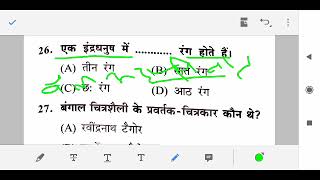 26. एक इंद्रधनुष में ........... रंग होते हैं।
(A) तीन रंग (B) सात रंग
(C) छः रंग (D) आठ रंग
27. बंगाल चित्रशैली के प्रवर्तक-चित्रकार कौन थे?
(A) रवींद्रनाथ टैगोर